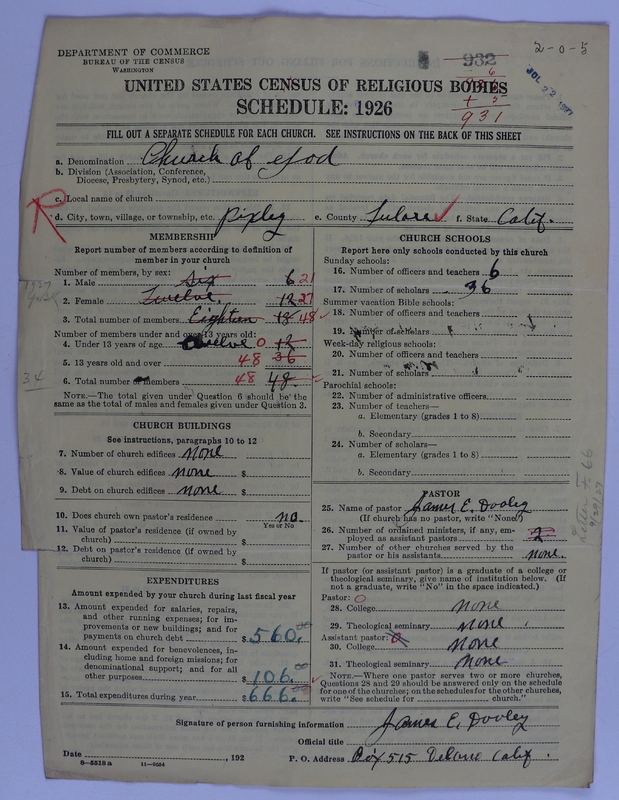 DEPARTMENT OF COMMERCE
BUREAU OF THE CENSUS
WASHINGTON
932
2-0-5
UNITED STATES CENSUS OF RELIGIOUS BODIES
SCHEDULE: 1926
+ 5
931
FILL OUT A SEPARATE SCHEDULE FOR EACH CHURCH. SEE INSTRUCTIONS ON THE BACK OF THIS SHEET
a. Denomination Church of God
b. Division (Association, Conference, Diocese, Presbytery, Synod, etc.)
c. Local name of church
R
d. City, town, village, or township, etc. Pixley e. County Tulare f. State Calif.
MEMBERSHIP
Report number of members according to definition of member in your church
Number of members, by sex:
1. Male Six 6 21
2. Female Twelve 12 27
3. Total number of members Eighteen 18 48
Number of members under and over 13 years old:
4. Under 13 years of age twelve 0 12
5. 13 years old and over 48 36
6. Total number of members 48 48
NOTE.—The total given under Question 6 should be the same as the total of males and females given under Question 3.
34
CHURCH BUILDINGS
See instructions, paragraphs 10 to 12
7. Number of church edifices none
8. Value of church edifices none $
9. Debt on church edifices none $
10. Does church own pastor's residence no.
Yes or No
11. Value of pastor's residence (if owned by church) $
12. Debt on pastor's residence (if owned by church) $
EXPENDITURES
Amount expended by church during last fiscal year
13. Amount expended for salaries, repairs, and other running expenses; for improvements or new buildings; and for payments on church debt $ 560.00
14. Amount expended for benevolences, including home and foreign missions; for denominational support; and for all other purposes $ 106.00
15. Total expenditures during year $ 666.00
CHURCH SCHOOLS
Report here only schools conducted by this church
Sunday schools:
16. Number of officers and teachers 6
17. Number of scholars 36
Summer vacation Bible schools:
18. Number of officers and teachers
19. Number of scholars
Week-day religious schools:
20. Number of officers and teachers
21. Number of scholars
Parochial schools:
22. Number of administrative officers
23. Number of teachers—
a. Elementary (grades 1 to 8)
b. Secondary
24. Number of scholars—
a. Elementary (grades 1 to 8)
b. Secondary
PASTOR
25. Name of pastor James E. Dooley
(If church has no pastor, write "None")
26. Number of ordained ministers, if any, employed as assistant pastors 2
27. Number of other churches served by the pastor or his assistants none.
If pastor (or assistant pastor) is a graduate of a college or theological seminary, give name of institution below. (If not a graduate, write "No" in the space indicated.)
Pastor: 0
28. College none
29. Theological seminary none
Assistant pastor: 0
30. College none
31. Theological seminary none
NOTE.—Where one pastor serves two or more churches, Questions 28 and 29 should be answered only on the schedule for one of the churches; on the schedules for the other churches, write "See schedule for church."
Signature of person furnishing information James E. Dooley
Official title
Date , 192
P. O. Address Box 515 Delano Calif.
8-5518a 11-9594